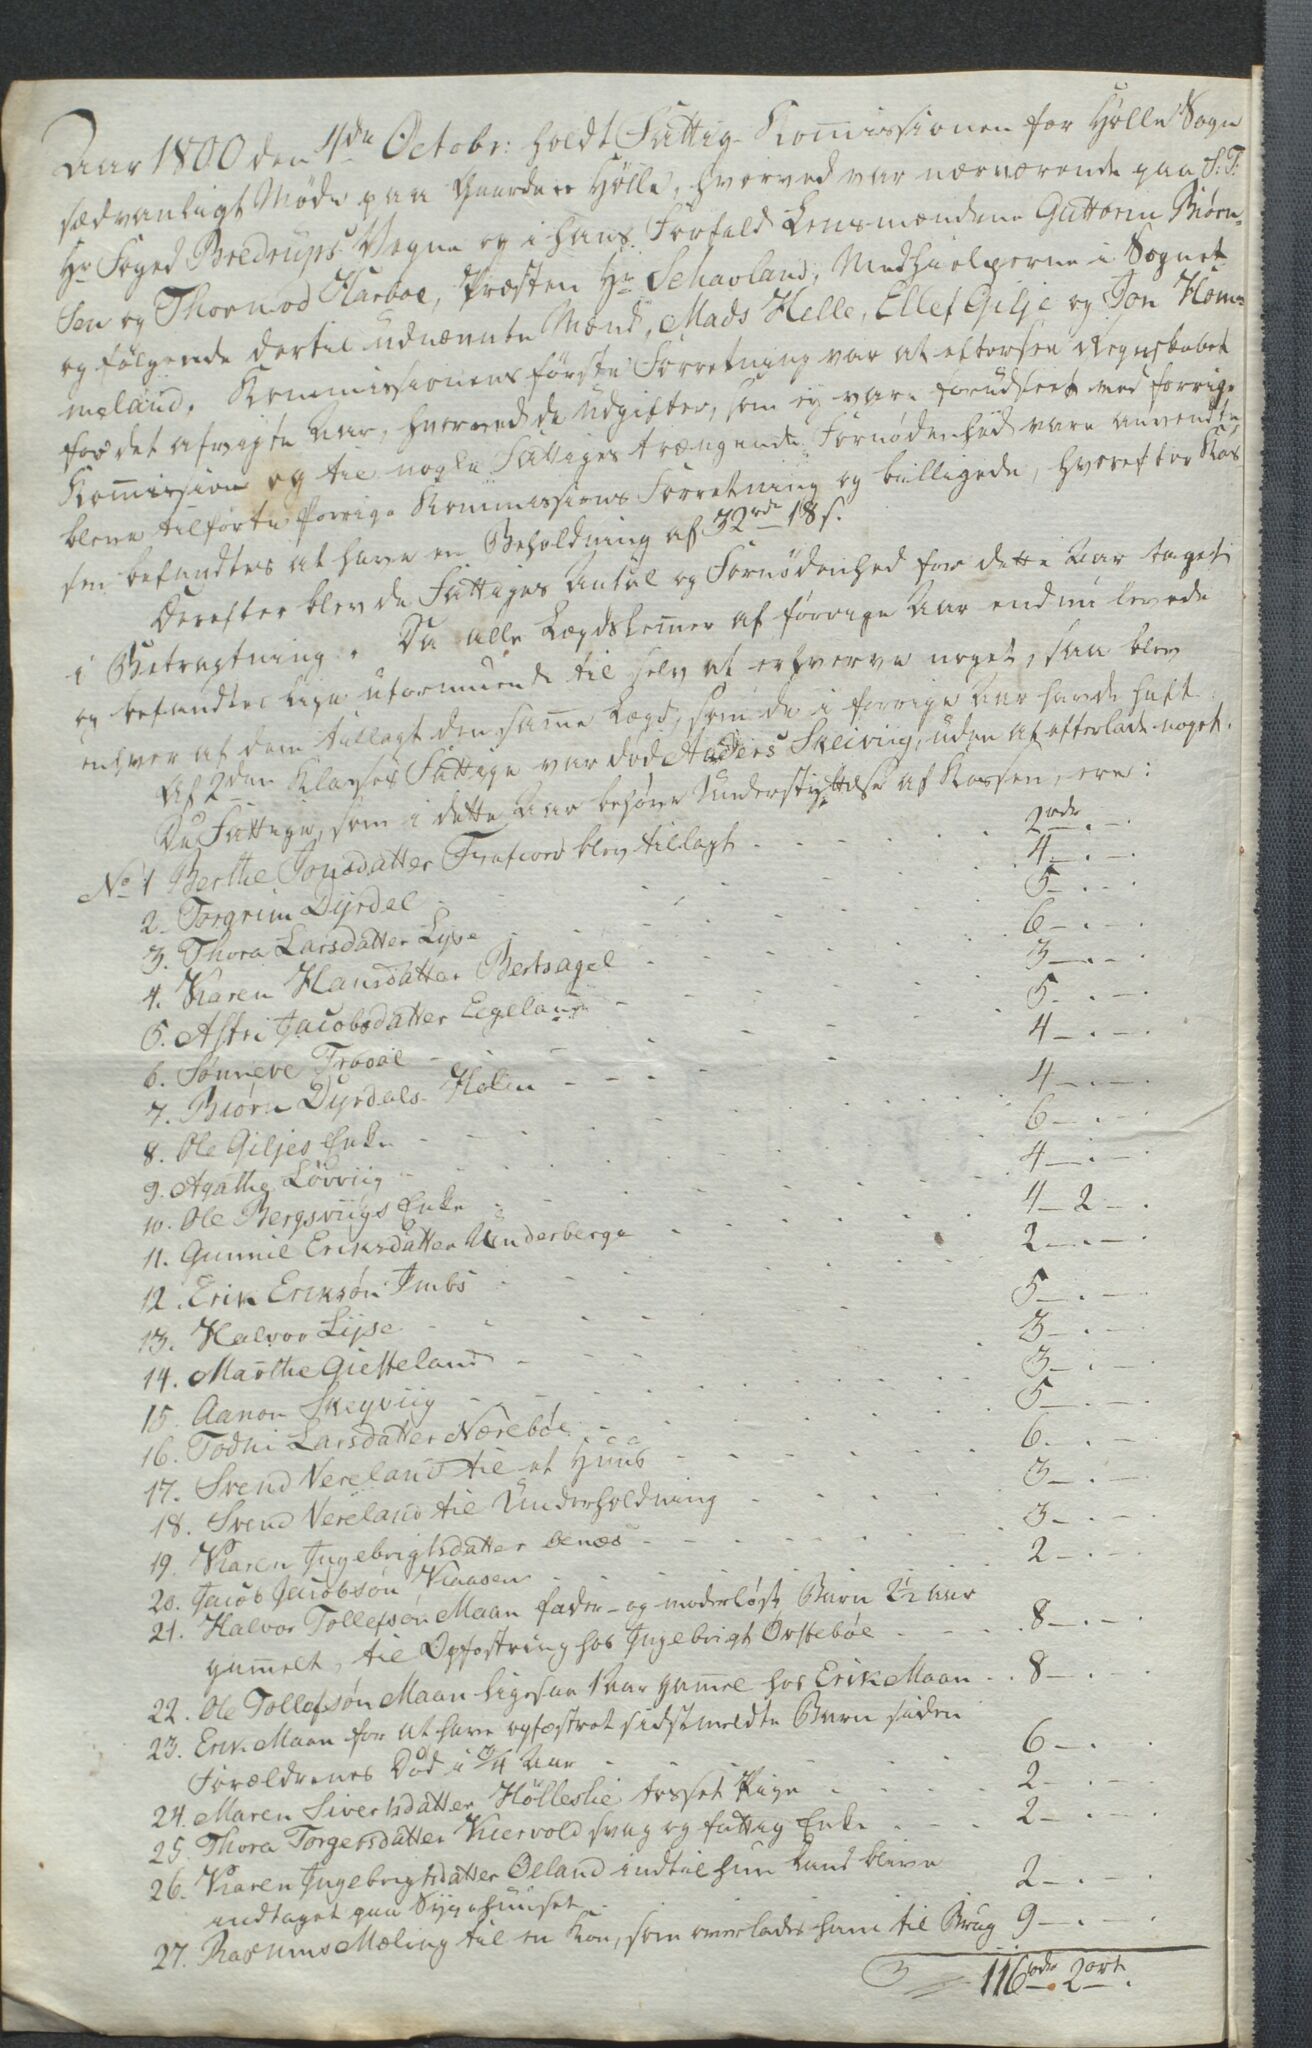 Aar 1800 den 4de Octobr: holdt Fattig-Kom̄issionen for Hølle Sogn
sædvanligt Møde paa Gaarden Hölle, hvorved var nærværende paa S: T:
Hr Foged Bredrups Vegne og i hans Forfald Lensmændene Guttorm Biørn-
sen og Thormod Harboe, Præsten Hr Schavland, Medhielperne i Sognet
og følgende dertil udnævnte Mænd, Mads Helle, Ellef Gilje og Jon Hom-
meland. Kommissionens første Forretning var at eftersee Regnskabet
for det afvigte Aar, hvorved de Udgifter, som ej vare forudseet ved forrige
Kom̄ission og til nogle Fattiges trængende Fornødenhed vare anvendte,
bleve tilførte forrige Kommissions Forretning og billigede, hvorefter Kas-
sen befandtes at have en Beholdning af 32 rdr 18 s.
Derefter blev de Fattiges Antal og Fornødenhed for dette Aar taget
i Betragtning. Da alle Lægdslem̄er af forrige Aar endnu levede
og befandtes lige uformuende til selv at erhverve noget, saa blev
enhver af dem tillagt den sam̄e Lægd, som de i forrige Aar havde haft.
Af 2den Klasses Fattige var død Anders Skeiviig, uden at efterlade noget.
De Fattige, som i dette Aar behøve Understyttelse af Kassen, ere:
No 1 Berthe Jonsdatter Frafiord blev tillagt - - - 2 rdr. -
2. Torgrim Dyrdal - - - 4 - . -
3. Thora Larsdatter Lyse - - - 5 - . -
4. Karen Hansdatter Bertsagel - - - 6 - . -
5. Astri Jacobsdatter Eegeland - - - 3 - . -
6. Sønneve Trodal - - - 5 - . -
7. Biørn Dyrdals-Hølen - - - 4 - . -
8. Ole Giljes Enke - - - 4 - . -
9. Agathe Løvviig - - - 6 - . -
10. Ole Bergsviigs Enke - - - 4 - . -
11. Gunnil Eriksdatter Underberge - - - 4 - 2 - .
12. Erik Eriksøn Imbs - - - 2 - . -
13. Halvor Lyse - - - 5 - . -
14. Marthe Gietteland - - - 3 - . -
15. Aanon Skeyviig - - - 3 - . -
16. Todni Larsdatter Nærebøe - - - 5 - . -
17. Svend Vereland til et Huus - - - 6 . -
18. Svend Vereland til Underholdning - - - 3 - . -
19. Karen Ingebrigtsdatter Oenæs - - - 3 - . -
20. Jacob Jacobsøn Kaasen - - - 2 - . -
21. Halvor Tollefsøn Maan fader- og moderløst Barn 2½ Aar
gam̄elt, til Opfostring hos Ingebrigt Örstebøe - - - 8 - . -
22. Ole Tollefsøn Maan ligesaa 1 Aar gam̄el hos Erik Maan - . 8 - . -
23. Erik Maan for at have opfostret sidstmeldte Barn siden
Forældrenes Død i ¾ Aar - - - 6 - . -
24. Maren Sivertsdatter Hölleslie tosset Pige - - - 2 - . -
25. Thora Torgersdatter Kiervold svag og fattig Enke - - - 2 - . -
26. Karen Ingebrigtsdatter Oeland indtil hun kand blive
indtaget paa Sygehuuset - - - 2 - . -
27. Rasmus Mæling til en Koe, som overlades ham til Brug 9 - . -
116 rdr. 2 ort.